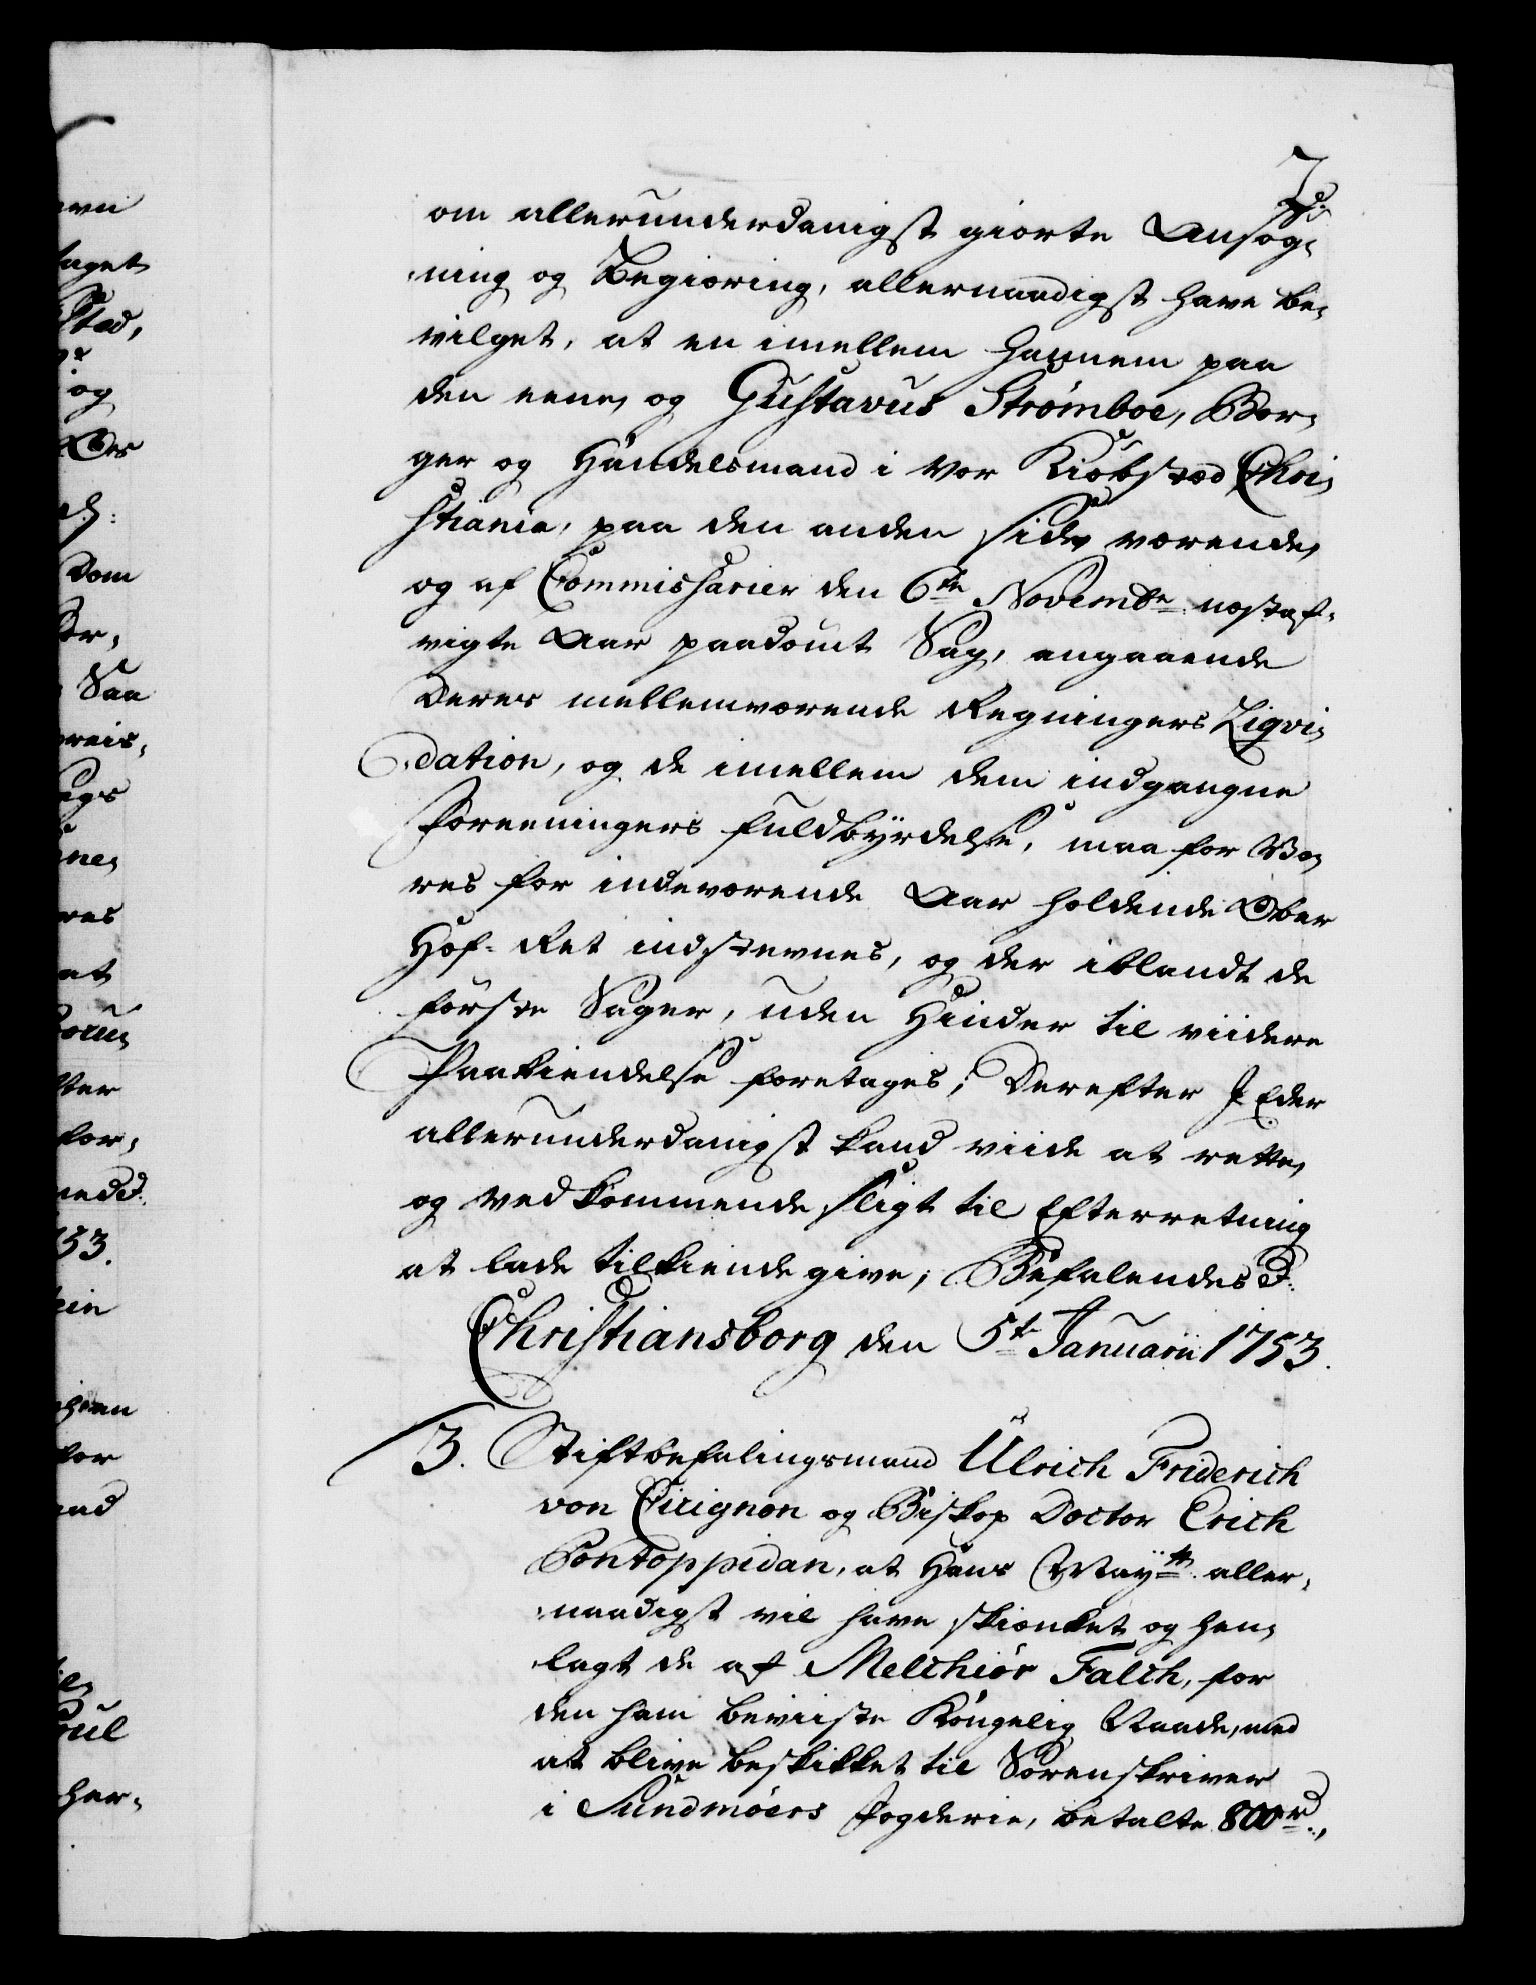 7
om allerunderdanigst giorte Ansøg-
ning og Begiæring, allernaadigst have be-
vilget, at en imellem hannem paa
den eene, og Gustavus Strømboe, Bor-
ger og Handelsmand i vor Kiøbstæd Chri-
stiania, paa den anden Side værende,
og af Commissarier den 6te Novembr næstaf-
vigte Aar paadømt Sag, angaaende
Deres mellemværende Regningers Liqvi-
dation, og de imellem dem indgangne
Foreeningers fuldbyrdelse, maa for Vo-
res for indeværende Aar holdende Ober
Hof-Ret indstevnes, og der iblandt de
første Sager, uden Hinder til viidere
Paakiendelse foretages; Derefter I Eder
allerunderdanigst kand viide at rette,
og vedkommende sligt til Efterretning
at lade tilkiende give; Befalendes d:
Christiansborg den 5te Januarii 1753.
3. Stiftbefalingsmand Ulrich Friderich
von Cicignon og Biskop Doctor Erich
Pontoppidan, at Hans Maytt aller-
naadigst vil have skienket og hen-
lagt de af Melchiór Falch, for
den ham beviiste Kongelig Naade, med
at blive beskikket til Sorenskriver
i Sundmöers Fogderie, betalte 800 rd.,